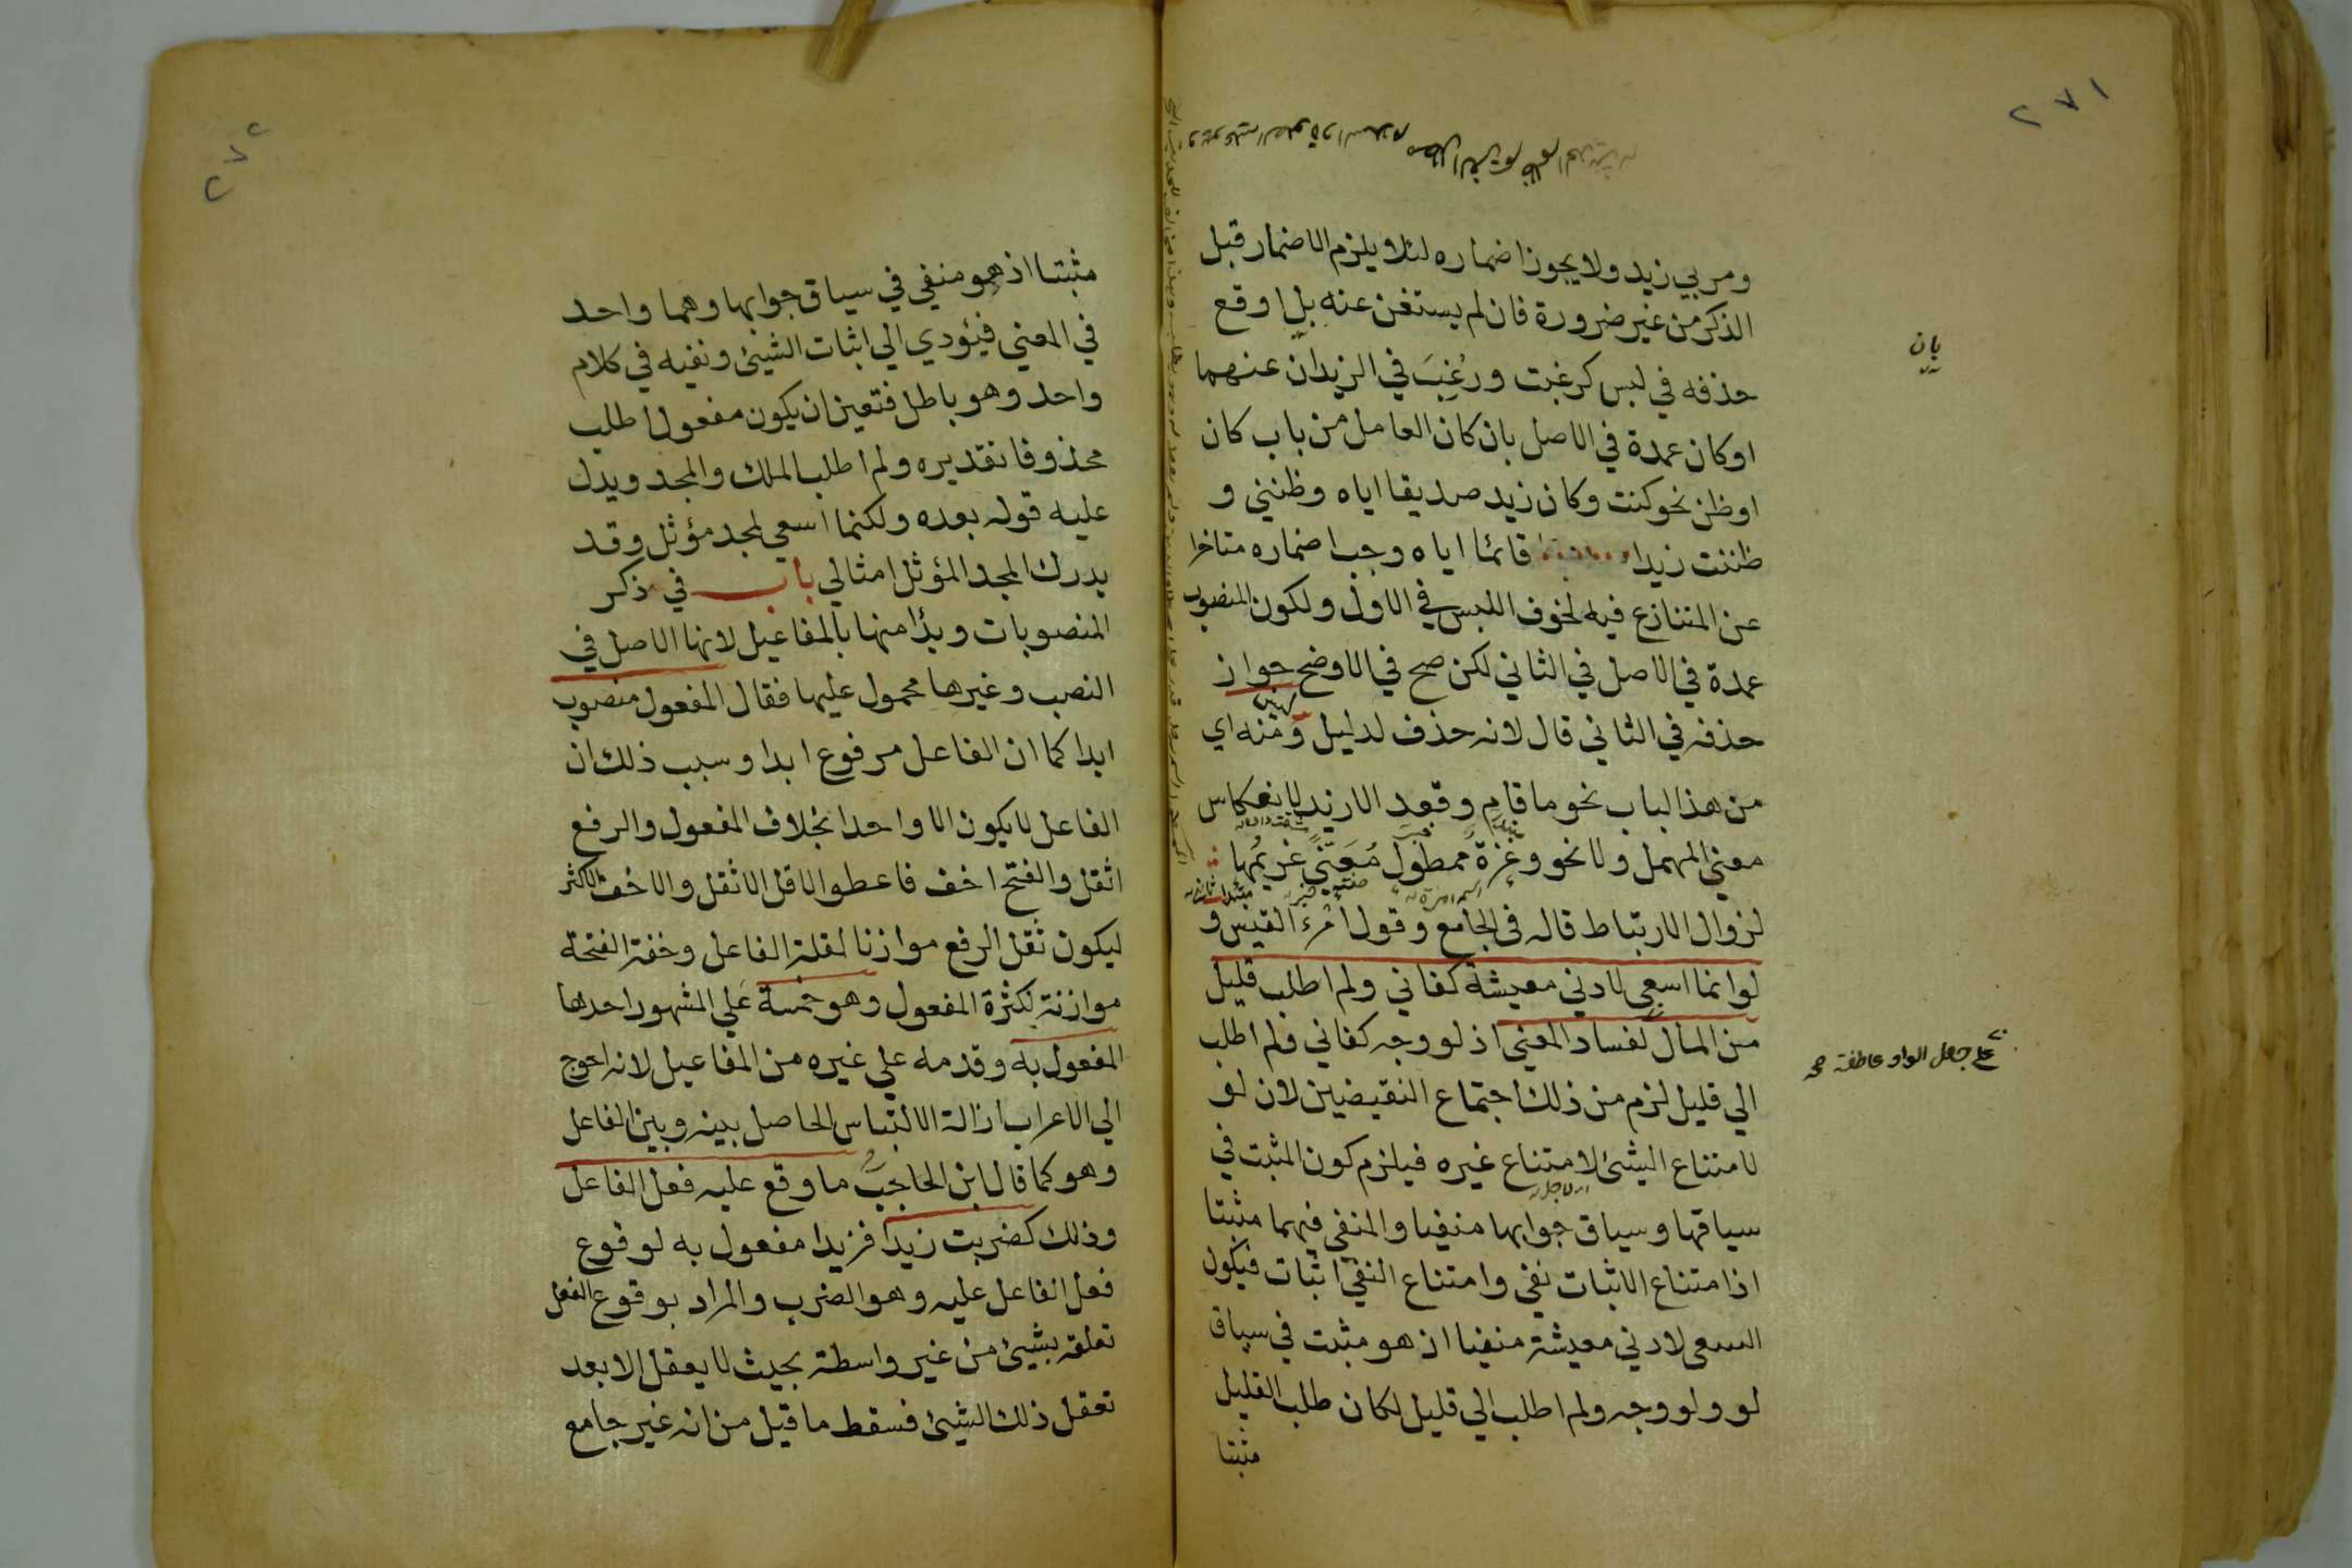 ٢٧١
ومر بي زيد ولا يجوز اضماره لئلا يلزم الاضمار قبل
الذكر من غير ضرورة فان لم يستغن عنه بل اوقع
حذفه في لبس كرغبت ورُغِبَ في الزيدان عنهما
اوكان عمدة في الاصل بان كان العامل من باب كان
اوظن نحو كنت وكان زيد صديقا اياه وظنني و
ظننت زيدا قائما اياه وجب اضماره متاخرا
عن المتنازع فيه لخوف اللبس في الاول ولكون المنصوب
عمدة في الاصل في الثاني لكن صح في الاوضح جواز
حذفه في الثاني قال لانه حذف لدليل ومنه اي
من هذا الباب نحو ما قام وقعد الا زيد لانعكاس
معني المهمل ولا نحو وعزة ممطول مُعَنًّي غريمها
لزوال الارتباط قاله في الجامع وقول امرء القيس و
لوانما اسعي لادني معيشة كفاني ولم اطلب قليل
من المال لفساد المعني اذ لو وجه كفاني ولم اطلب
الي قليل لزم من ذلك اجتماع النقيضين لان لو
لامتناع الشئ لامتناع غيره فيلزم كون المثبت في
سياقها وسياق جوابها منفيا والمنفي فيهما مثبتا
اذ امتناع الاثبات نفي وامتناع النفي اثبات فيكون
السعي لادني معيشة منفيا اذ هو مثبت في سياق
لو ولو وجه ولم اطلب الي قليل لكان طلب القليل
مثبتا
بان
علي جعل الواو عاطفة
٢٧٢
مثبتا اذ هو منفي في سياق جوابها وهما واحد
في المعني فيؤدي الي اثبات الشيئ ونفيه في كلام
واحد وهو باطل فتعين ان يكون مفعول اطلب
محذوفا تقديره ولم اطلب الملك والمجد ويدل
عليه قوله بعده ولكنما اسعي لمجد مؤثل وقد
يدرك المجد المؤثل امثالي باب في ذكر
المنصوبات وبدأ منها بالمفاعيل لانها الاصل في
النصب وغيرها محمول عليها فقال المفعول منصوب
ابدا كما ان الفاعل مرفوع ابدا وسبب ذلك ان
الفاعل لا يكون الا واحدا بخلاف المفعول والرفع
اثقل والفتح اخف فاعطوا الاقل الاثقل والاخف الاكثر
ليكون ثقل الرفع موازنا لقلة الفاعل وخفة الفتحة
موازنة لكثرة المفعول وهو خمسة علي المشهور احدها
المفعول به وقدمه علي غيره من المفاعيل لانه احوج
الي الاعراب ازالة الالتباس الحاصل بينه وبين الفاعل
وهو كما قال ابن الحاجب ما وقع عليه فعل الفاعل
وذلك كضربت زيدا فزيدا مفعول به لوقوع
فعل الفاعل عليه وهو الضرب والمراد بوقوع الفعل
تعلقه بشيئ من غير واسطة بحيث لا يعقل الا بعد
تعقل ذلك الشيئ فسقط ما قيل من انه غير جامع